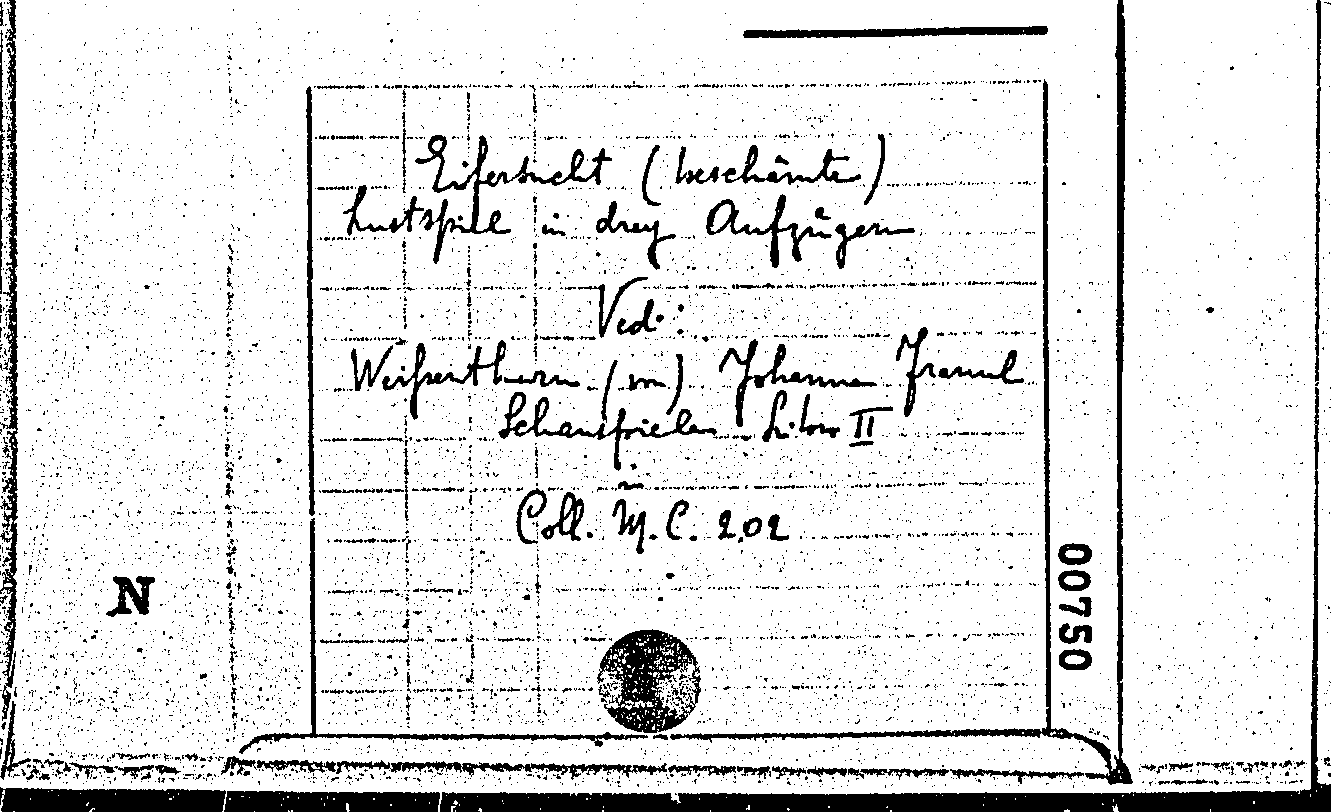 Eifersucht (beschämte)
Lustspiel in drey Aufzügen
Ved.:
Weißenthurn (von) Johanna Franul
Schauspielen
II
Coll. M. C. 202
N
00750